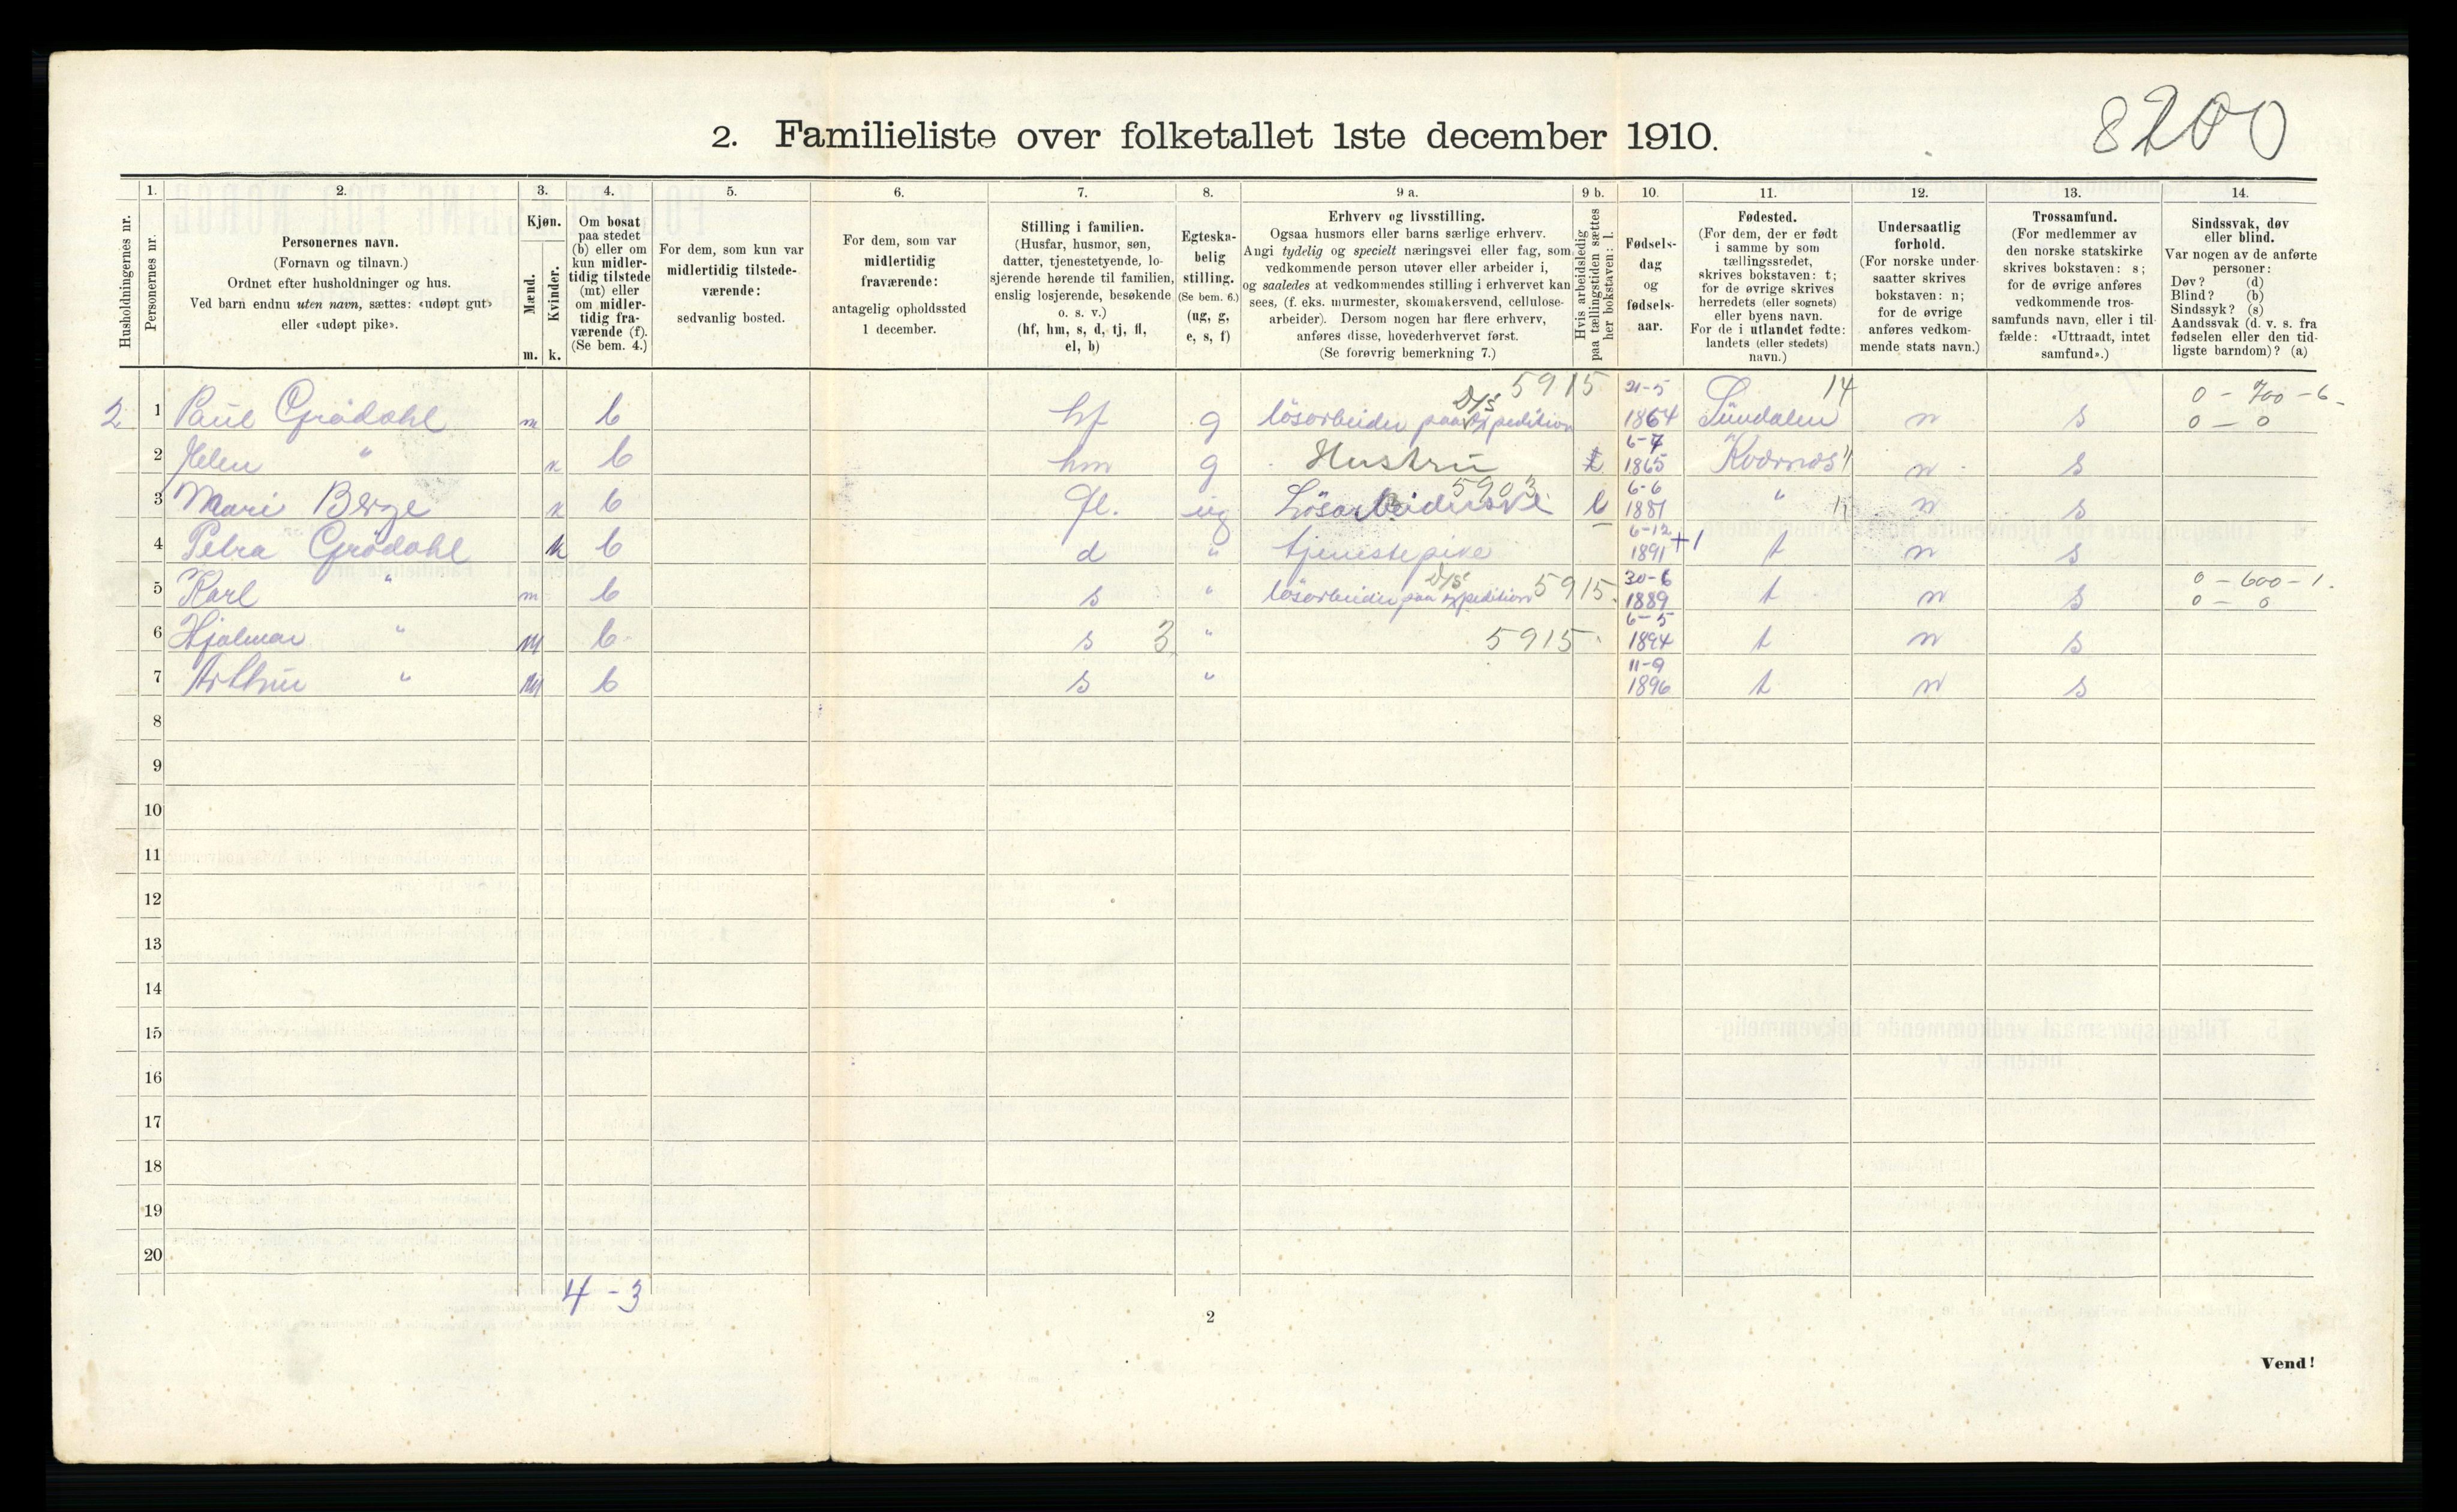 8200
2. Familieliste over folketallet 1ste december 1910.
Husholdningernes nr.
1.
Personernes nr.
2.
Personernes navn.
(Fornavn og tilnavn.)
Ordnet efter husholdninger og hus.
Ved barn endnu uten navn, sættes: «udøpt gut»
eller «udøpt pike».
3.
Kjøn.
Mænd.
Kvinder.
m. k.
4.
Om bosat
paa stedet
(b) eller om
kun midler-
tidig tilstede
(mt) eller
om midler-
tidig fra-
værende (f).
(Se bem. 4.)
5.
For dem, som kun var
midlertidig tilstede-
værende:
sedvanlig bosted.
6.
For dem, som var
midlertidig
fraværende:
antagelig opholdssted
1 december.
7.
Stilling i familien.
(Husfar, husmor, søn,
datter, tjenestetyende, lo-
sjerende hørende til familien,
enslig losjerende, besøkende
o. s. v.)
(hf, hm, s, d, tj, fl,
el, b)
8.
Egteska-
belig
stilling.
(Se bem. 6.)
(ug, g,
e, s, f)
9 a.
Erhverv og livsstilling.
Ogsaa husmors eller barns særlige erhverv.
Angi tydelig og specielt næringsvei eller fag, som
vedkommende person utøver eller arbeider i,
og saaledes at vedkommendes stilling i erhvervet kan
sees, (f. eks. murmester, skomakersvend, cellulose-
arbeider). Dersom nogen har flere erhverv,
anføres disse, hovederhvervet først.
(Se forøvrig bemerkning 7.)
9 b.
Hvis arbeidsledig
paa tællingstiden sættes
her bokstaven: l.
10.
Fødsels-
dag
og
fødsels-
aar.
11.
Fødested.
(For dem, der er født
i samme by som
tællingsstedet,
skrives bokstaven: t;
for de øvrige skrives
herredets (eller sognets)
eller byens navn.
For de i utlandet fødte:
landets (eller stedets)
navn.)
12.
Undersaatlig
forhold.
(For norske under-
saatter skrives
bokstaven: n;
for de øvrige
anføres vedkom-
mende stats navn.)
13.
Trossamfund.
(For medlemmer av
den norske statskirke
skrives bokstaven: s;
for de øvrige anføres
vedkommende tros-
samfunds navn, eller i til-
fælde: «Uttraadt, intet
samfund».)
14.
Sindssvak, døv
eller blind.
Var nogen av de anførte
personer:
Døv? (d)
Blind? (b)
Sindssyk? (s)
Aandssvak (d. v. s. fra
fødselen eller den tid-
ligste barndom)? (a)
5915 21-5 14 0 - 700 - 6
2 1 Paul Grödahl m b hf g lösarbeider paa D/s Expedition 1864 Sundalen n s 0 - 0
6-7
2 Helen " k b hm g Hustru 1865 Kvernes n s
5903 6-6
3 Mari Berge k b fl. ug Lösarbeiderske l 1881 " n s
6-12
4 Petra Grödahl k b d " tjenestepike 1891 +1 t n s
30-6 0 - 600 - 1.
5 Karl " m b s " lösarbeider paa D/s Expedition 5915. 1889 t n s 0 - 0
6-5
6 Hjalmar " m b s 3 " 5915 1894 t n s
11-9
7 Arthur " m b s " 1896 t n s
8
9
10
11
12
13
14
15
16
17
18
19
20
4 - 3
2
Vend!